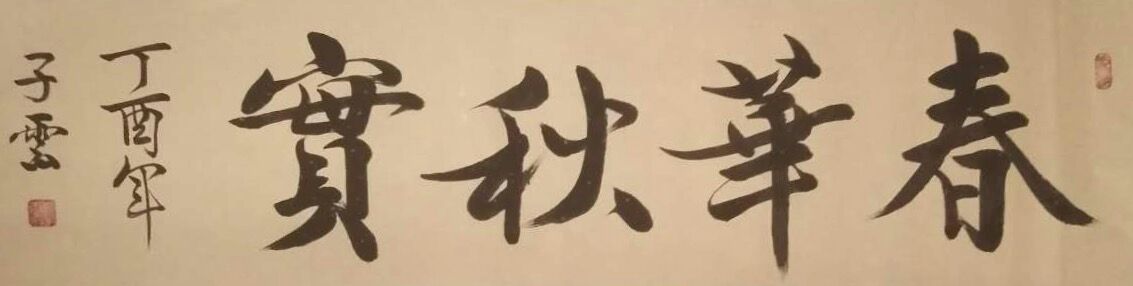 春華秋實
丁酉年
子雲